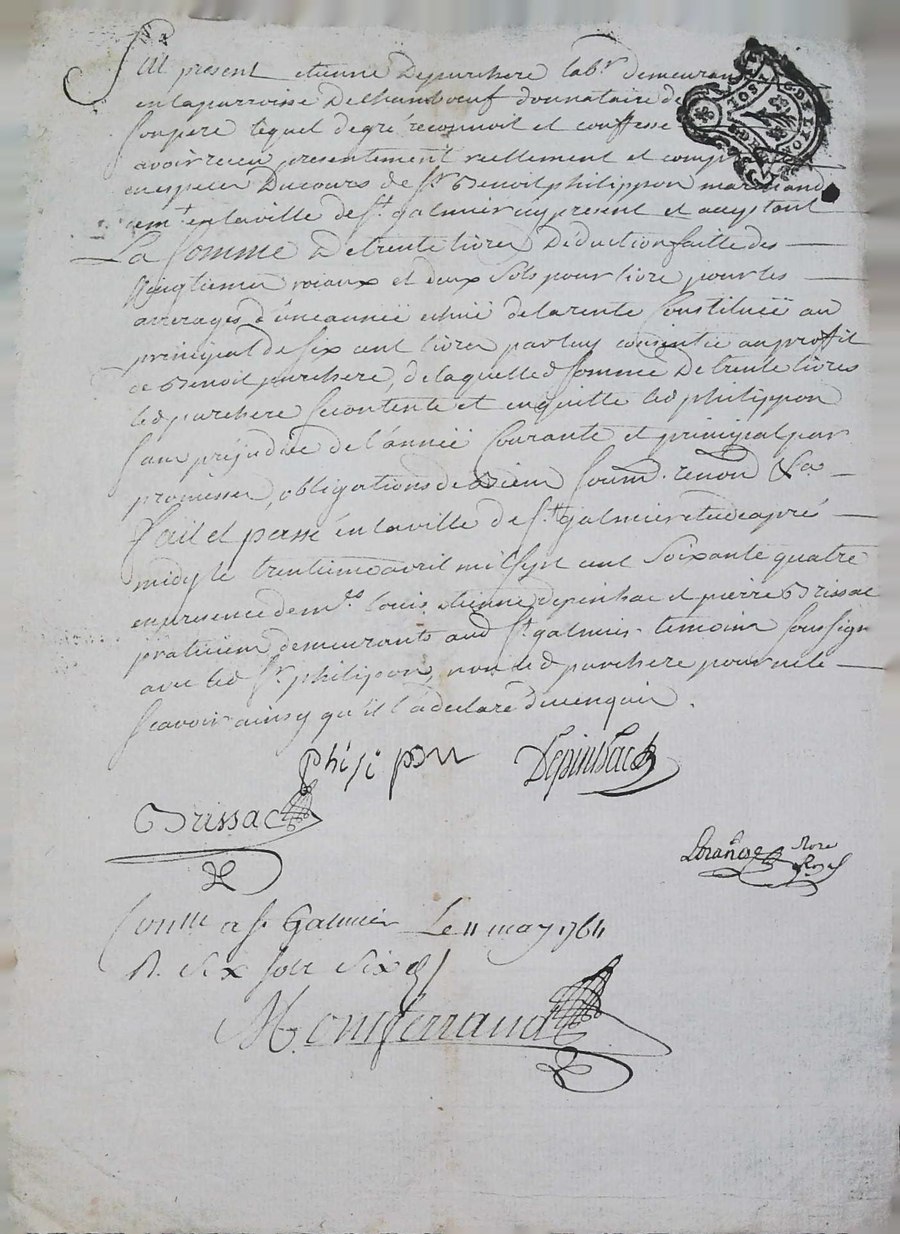 Fut present etienne Depurchere lab.r demeurant
en la parroisse De Chambœuf donnataire de
son pere lequel de gré reconnoit et confesse
avoir receu presentement reellement et comp
en especes Du cours de S.r Benoit philippon marchand
dem.t en la ville de S.t galmier icy present et acceptant
La Somme De trente livres Déduction faitte des
vingtiemes roiaux et deux Sols pour livre pour les
arrerages d'une année echüe de la rente Constituée au
principal de Six cent livres par luy consentie au proffit
de Benoit purchere, de laquelle d Somme De trente livres
led purchere Se contente et en quitte led philippon
Sans préjudice de l'année Courante et principal par
promesses, obligations de Biens Soum. renon &a
fait et passé en la ville de S.t galmier etude après
midy le trentieme avril mil Sept cent Soixante quatre
en presence de m.es Louis etienne depinhac et pierre Brissac
praticiens demeurants aud S.t galmier temoins Soussign
avec led S.r philippon, non led purchere pour ne le
Scavoir ainsy qu'il l'a declaré De ce enquis.
phisipon Depinhac
Brissac
not.re Royal
Con.lle a S.t Galmier Le 11 may 1764
R. Six Sols Six d
Montferrand